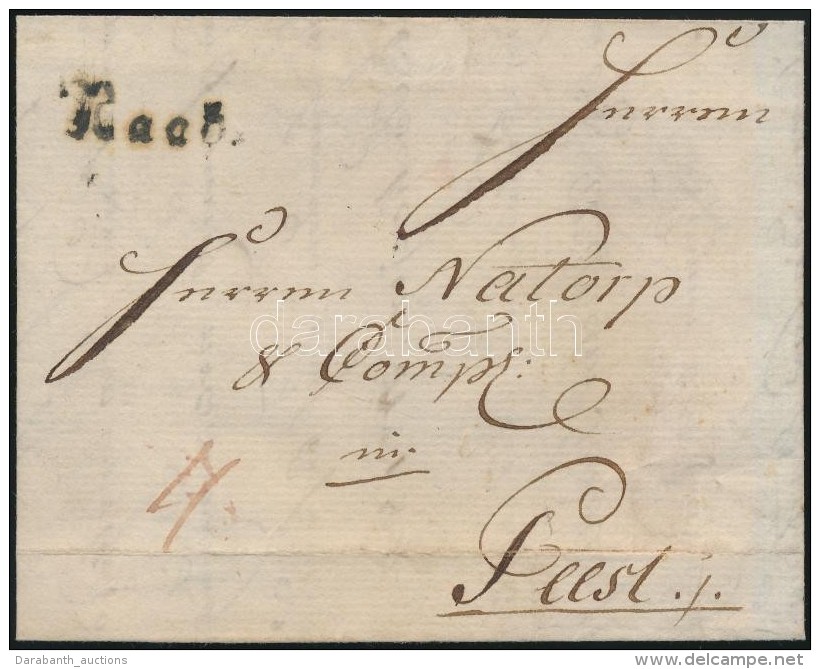 Raab.
Herren
Herren Natorp
& Comp:
in
Peest ./.
darabanth
Darabanth_auctions
www.delcampe.net